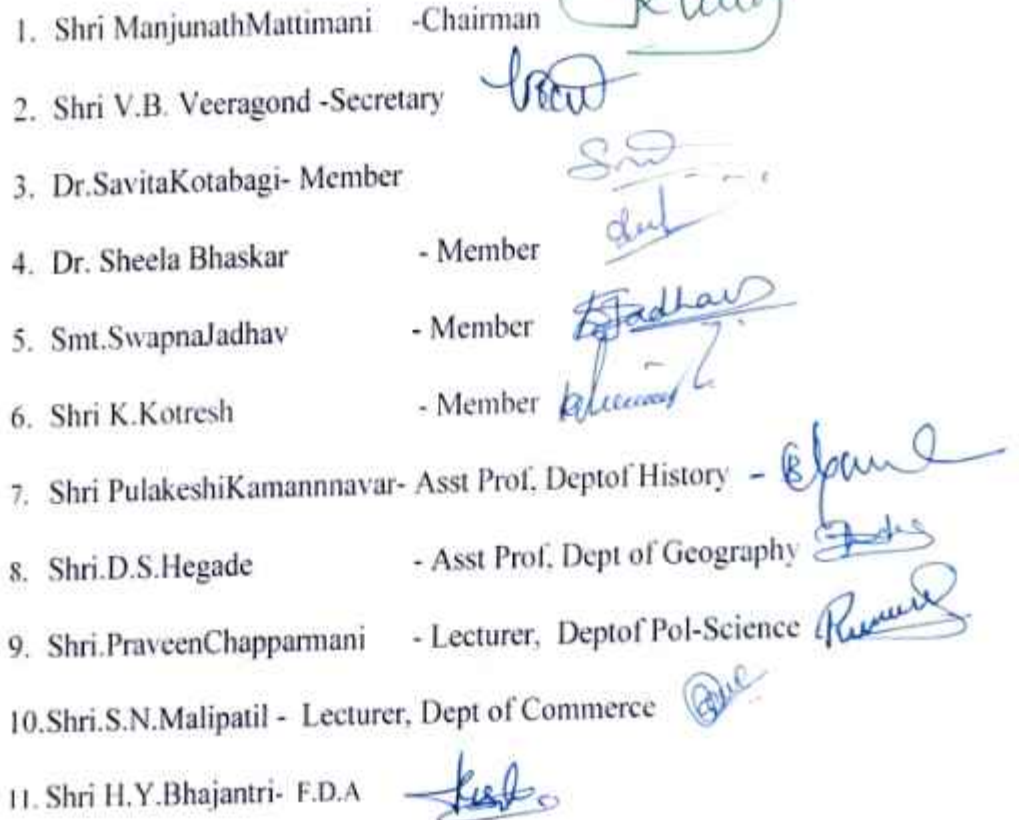 1. Shri ManjunathMattimani -Chairman
2. Shri V.B. Veeragond -Secretary
3. Dr.SavitaKotabagi- Member
4. Dr. Sheela Bhaskar - Member
5. Smt.SwapnaJadhav - Member Jadhav
6. Shri K.Kotresh - Member
7. Shri PulakeshiKamannnavar- Asst Prof. Deptof History -
8. Shri.D.S.Hegade - Asst Prof. Dept of Geography
9. Shri.PraveenChapparmani - Lecturer, Deptof Pol-Science
10.Shri.S.N.Malipatil - Lecturer, Dept of Commerce
11. Shri H.Y.Bhajantri- F.D.A